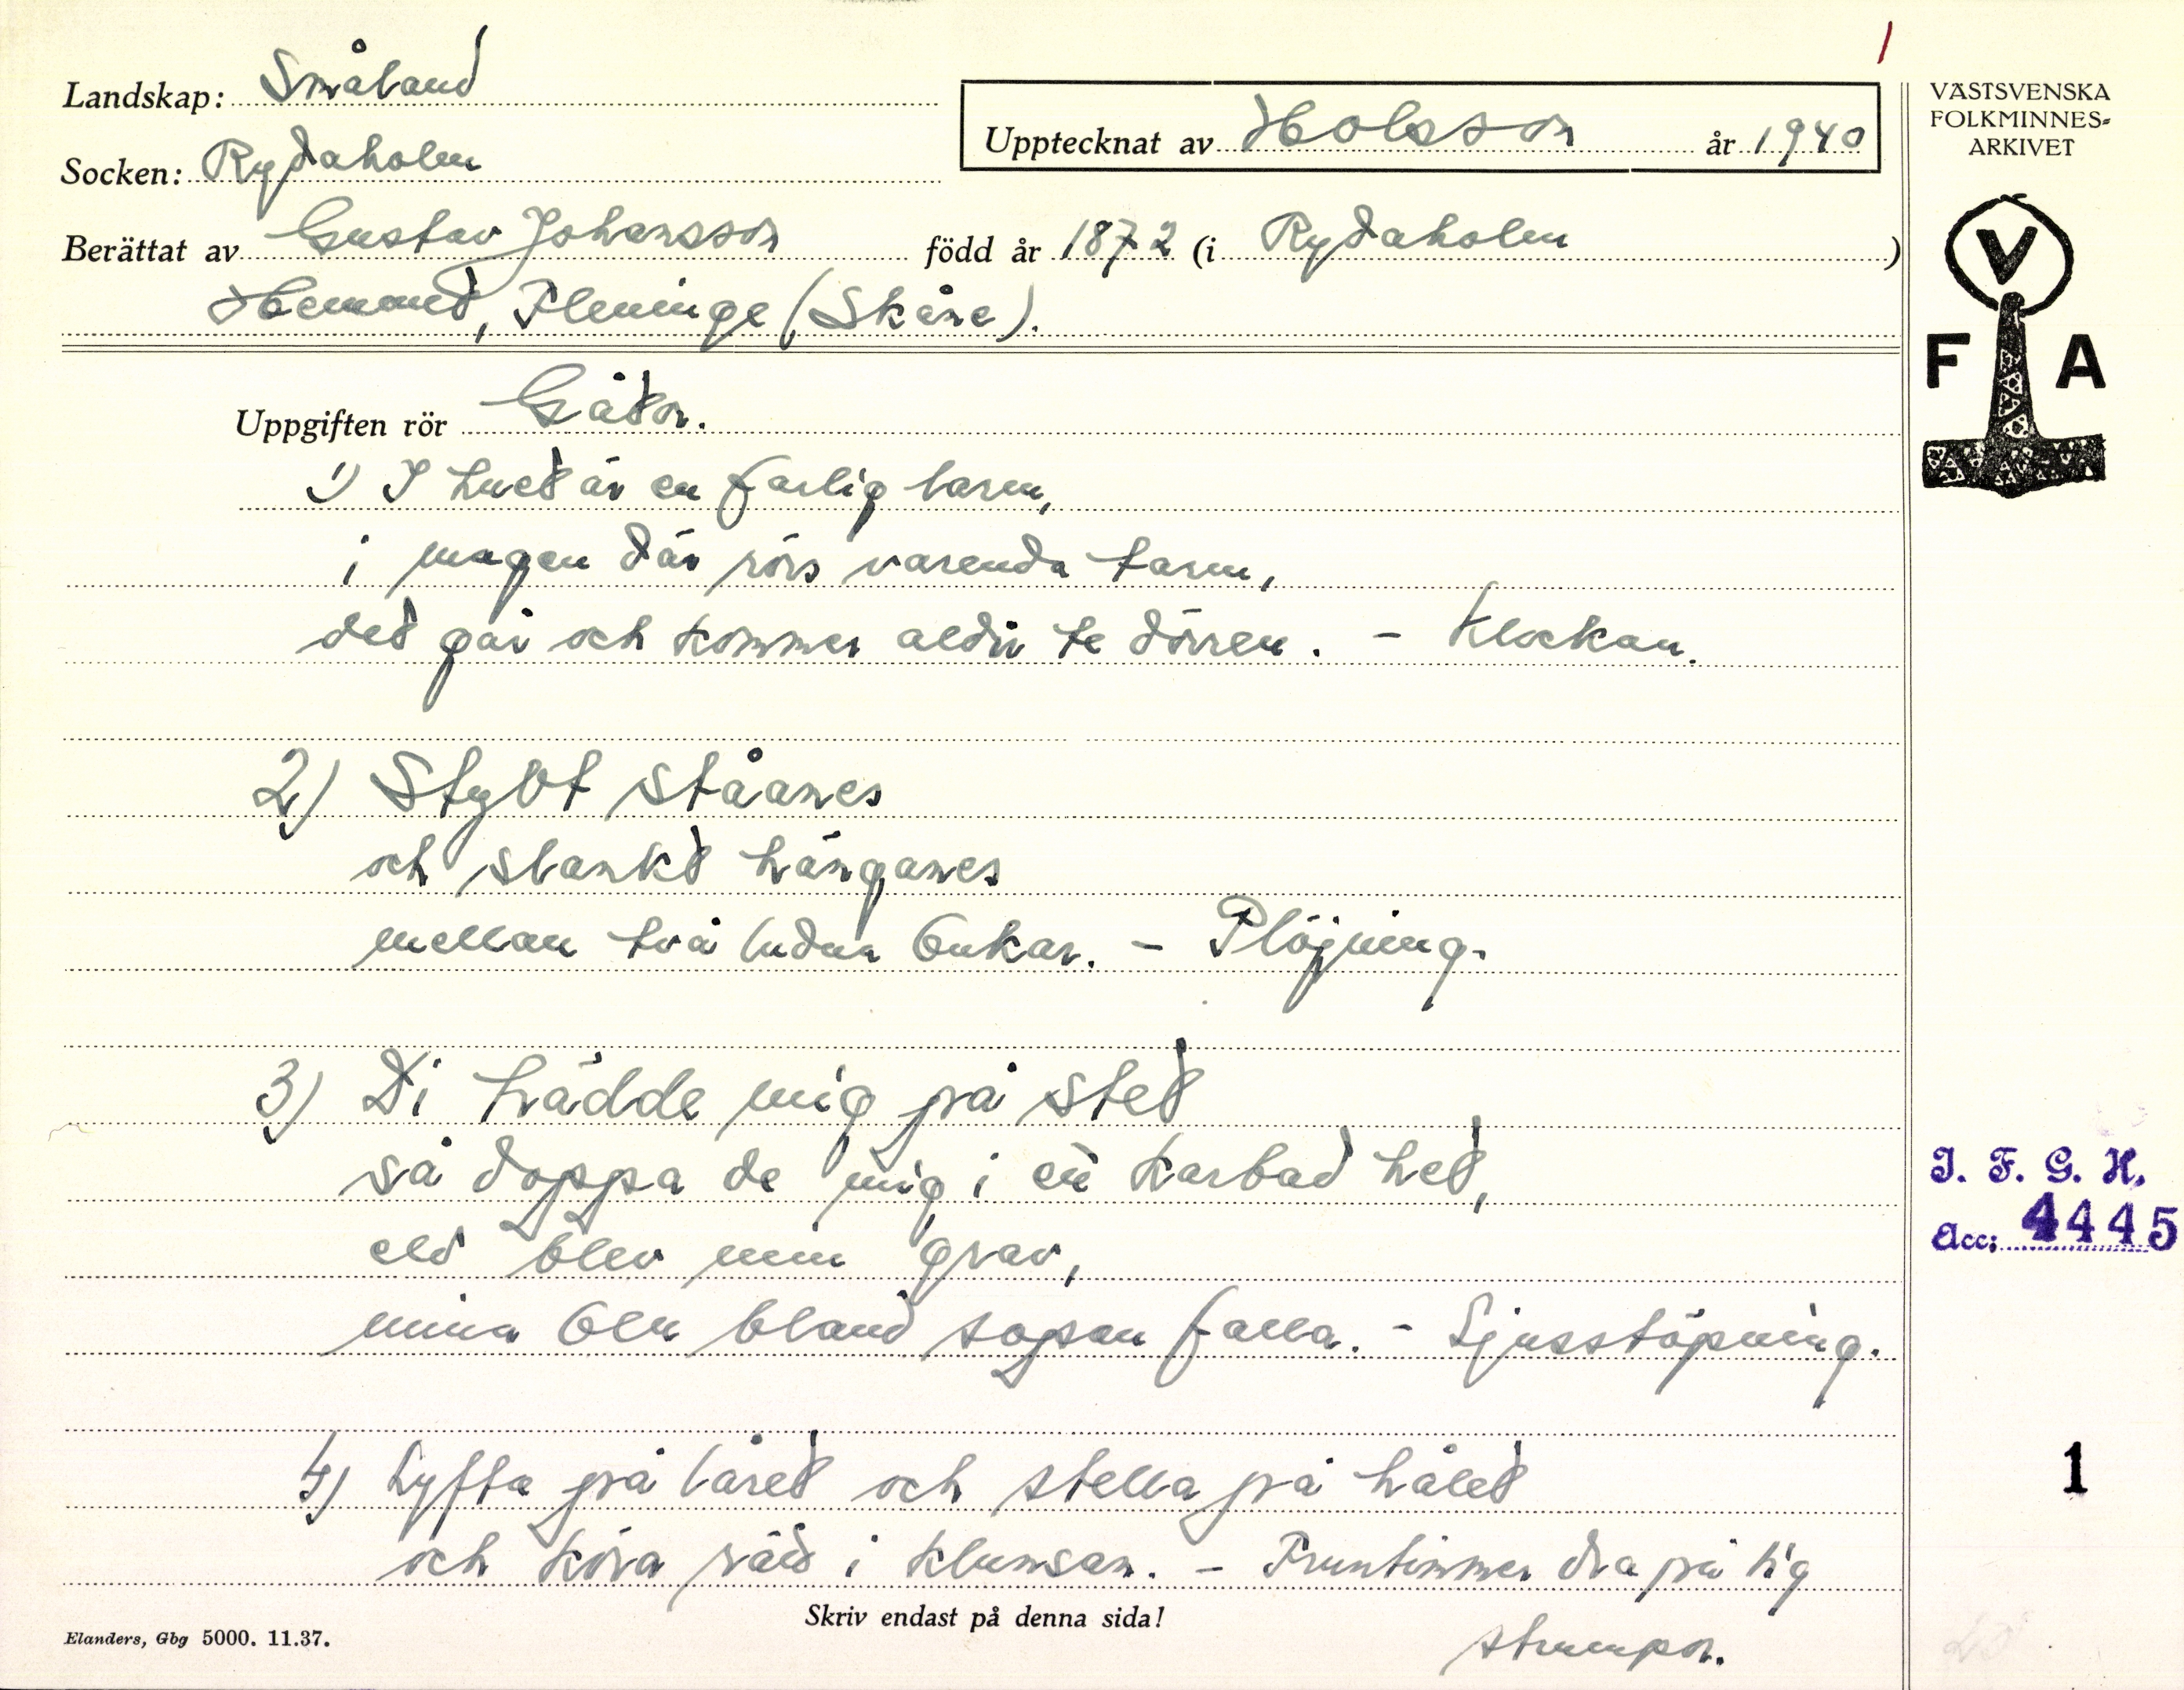 1
Landskap: Småland
Upptecknat av Holsson år 1940
Socken: Rydaholm
Berättat av Gustav Johansson född år 1872 (i Rydaholm)
Hemmed, Fleninge (Skåne).
Uppgiften rör Gåtor.
1) I huet är en farlig larm,
i magen där rörs varenda tarm,
det går och kommer aldri te dörren. - Klockan.
2) Stylt ståanes
och slankt hänganes
mellan två ludna bukar. - Plöjning.
3) Di trädde mig på stet
så doppa de mig i ett karbad het,
eld blev min grav,
mina ben bland sopen falla. - Ljusstöpning.
4) Lyfta på låret och stella på hålet
och köra räd i klumsan. - Fruntimmer dra på sig
strumpor.
Skriv endast på denna sida!
Elanders, Gbg 5000. 11.37.
VÄSTSVENSKA
FOLKMINNES-
ARKIVET
V
F A
I. F. G. H.
Acc: 4445
1